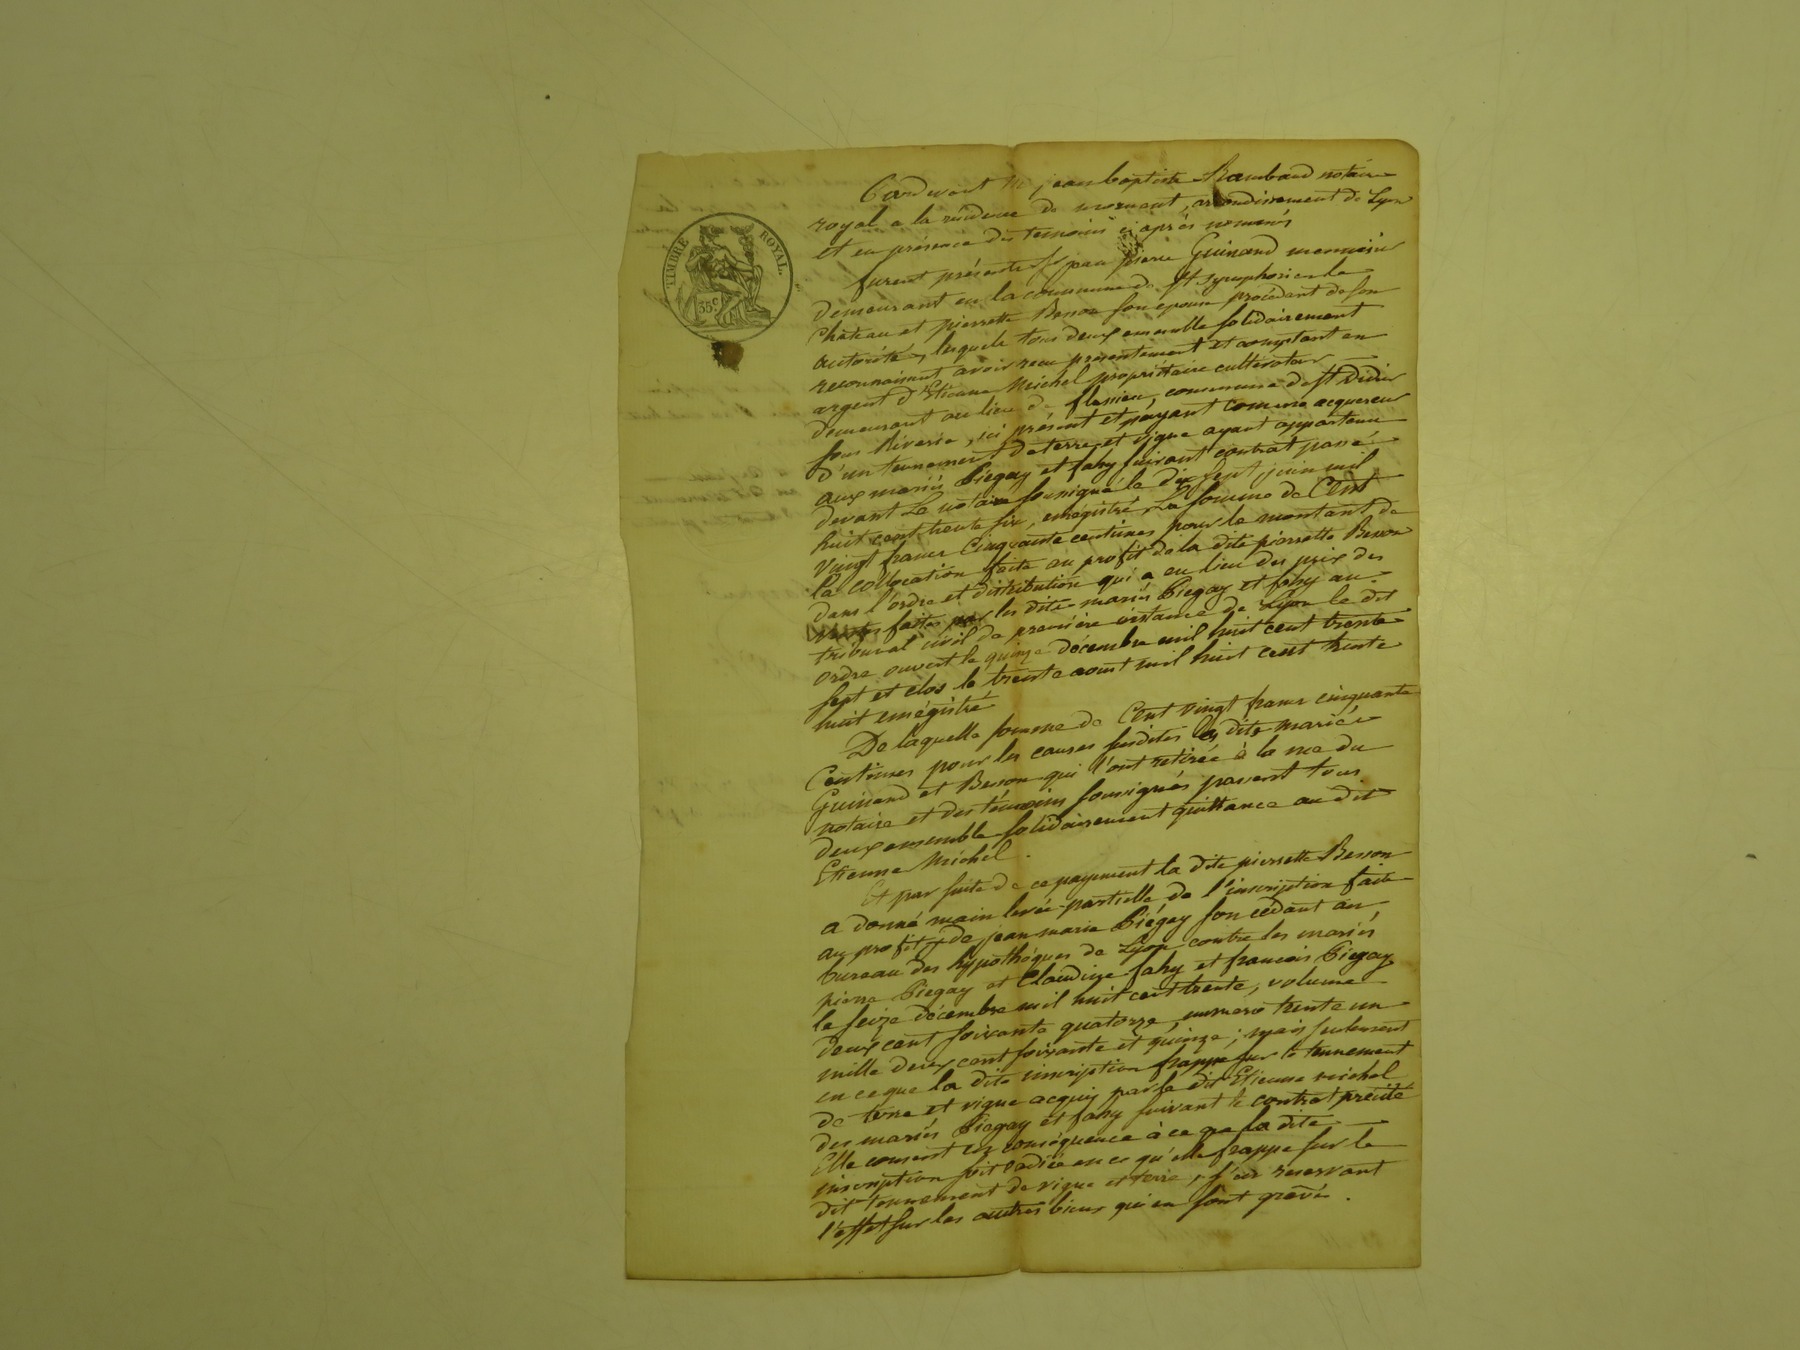 TIMBRE ROYAL.
35c
Pardevant Me jean baptiste Rambaud notaire
royal a la résidence de mornant, arrondissement de Lyon
et en présence des temoins ci après nommés
furent présents jean pierre Guinand menuisier
demeurant en la commune de St Symphorien le
Château et pierrette Besson son epouse procédant de son
autorité, lesquels tous deux ensemble solidairement
reconnaissent avoir recu présentement et comptant en
argent d'Etienne Michel propriétaire cultivateur
demeurant au lieu de flassieu, commune de St Didier
sous Riverie, ici présent et payant comme acquereur
d'un tennement de terre et vigne ayant appartenu
aux mariés Piegay et fahy suivant contrat passé
devant Le notaire soussigné le dix sept juin mil
huit cent trente six, enregistré La somme de Cent
vingt francs Cinquante centimes pour le montant de
la collocation faite au profit de la dite pierrette Besson
dans l'ordre et distribution qui a eu lieu du prix des
ventes faites par les dits mariés Piegay et fahy au
tribunal civil de première instance de Lyon le dit
ordre ouvert le quinze décembre mil huit cent trente
sept et clos le trente aout mil huit cent trente
huit enrégistré
De laquelle somme de Cent vingt francs cinquante
Centimes pour les causes susdites les dits mariés
Guinand et Besson qui l'ont retirée à la vue du
notaire et des témoins soussignés passent tous
deux ensemble solidairement quittance au dit
Etienne Michel.
Et par suite de ce payement la dite pierrette Besson
a donné main levée partielle de l'inscription faite
au profit de jean marie Piégay son cédant au
bureau des hypothéques de Lyon contre les mariés
pierre Piegay et Claudine fahy et francois Piegay
le seize décembre mil huit cent trente, volume
deux cent soixante quatorze, numero trente un
mille deux cent soixante et quinze; mais seulement
en ce que la dite inscription frappe sur le tennement
de terre et vigne acquis par le dit Etienne michel
des mariés Piegay et fahy suivant le contrat précité
Elle consent en conséquence à ce que la dite
inscription soit radiée en ce qu'elle frappe sur le
dit tennement de vigne et terre, s'en reservant
l'effet sur les autres biens qui en sont grevés.